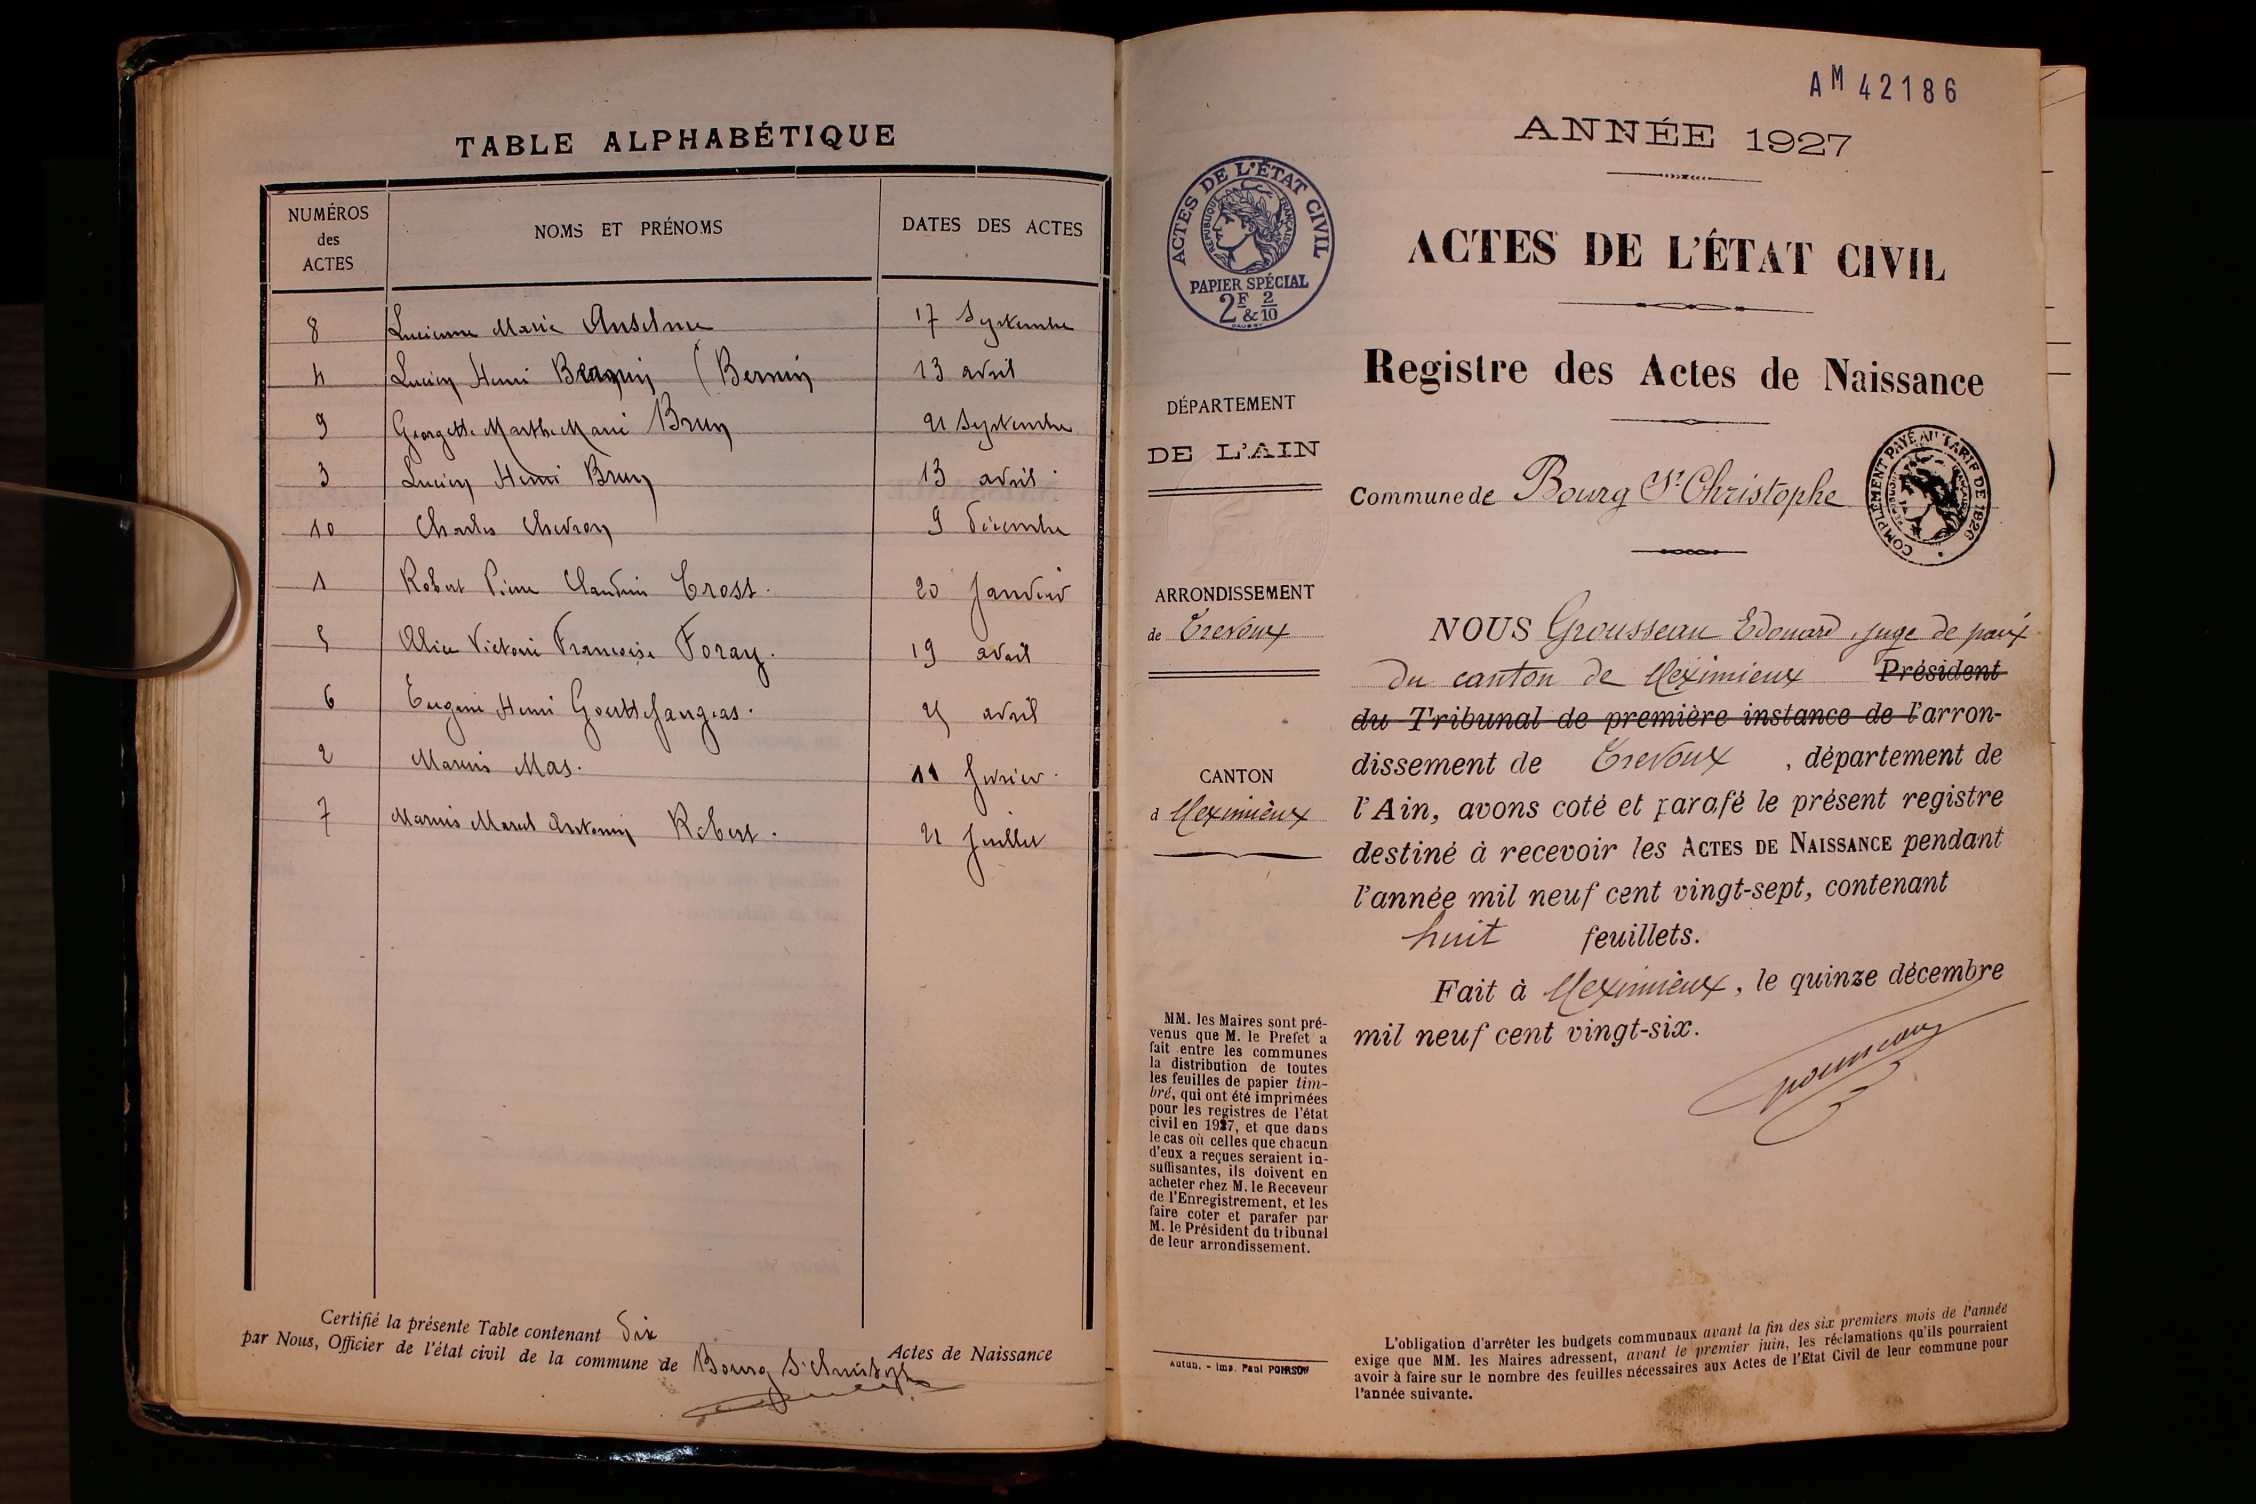 TABLE ALPHABÉTIQUE
NUMÉROS des ACTES NOMS ET PRÉNOMS DATES DES ACTES
8 Lucienne Marie Anselme 17 Septembre
4 Lucien Henri (Bernin 13 avril
9 Georgette Marthe Marie Brun 21 Septembre
3 Lucien Henri Brun 13 avril
10 Charles Chevron 9 Décembre
1 Robert Pierre Claudin Crost. 20 Janvier
5 Alice Victoire Françoise Foray. 19 avril
6 Eugène Henri Gouttefangeas. 25 avril
2 Marius Mas. 11 février
7 Marius Marcel Antonin Robert. 21 Juillet
Certifié la présente Table contenant dix Actes de Naissance
par Nous, Officier de l'état civil de la commune de Bourg St Christophe
AM 42186
ANNÉE 1927
ACTES DE L'ÉTAT CIVIL
RÉPUBLIQUE FRANÇAISE
PAPIER SPÉCIAL
2F & 2/10
ACTES DE L'ÉTAT CIVIL
Registre des Actes de Naissance
DÉPARTEMENT
DE L'AIN
Commune de Bourg St Christophe
COMPLÉMENT PAYÉ AU TARIF DE 1926
ARRONDISSEMENT
de Trevoux
CANTON
d Meximieux
NOUS Grousseau Edouard, juge de paix
du canton de Meximieux Président
du Tribunal de première instance de l'arron-
dissement de Trevoux, département de
l'Ain, avons coté et parafé le présent registre
destiné à recevoir les ACTES DE NAISSANCE pendant
l'année mil neuf cent vingt-sept, contenant
huit feuillets.
Fait à Meximieux, le quinze décembre
mil neuf cent vingt-six.
Grousseau
MM. les Maires sont pré-
venus que M. le Prefet a
fait entre les communes
la distribution de toutes
les feuilles de papier tim-
bré, qui ont été imprimées
pour les registres de l'état
civil en 1927, et que dans
le cas où celles que chacun
d'eux a reçues seraient in-
suffisantes, ils doivent en
acheter chez M. le Receveur
de l'Enregistrement, et les
faire coter et parafer par
M. le Président du tribunal
de leur arrondissement.
Autun. - Imp. Paul POIRSON
L'obligation d'arrêter les budgets communaux avant la fin des six premiers mois de l'année
exige que MM. les Maires adressent, avant le premier juin, les réclamations qu'ils pourraient
avoir à faire sur le nombre des feuilles nécessaires aux Actes de l'Etat Civil de leur commune pour
l'année suivante.